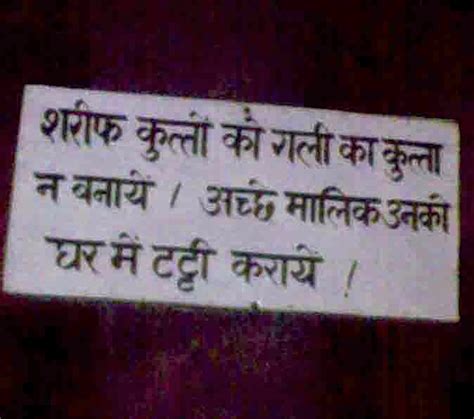 शरीफ कुत्तों को गली का कुत्ता
न बनायें । अच्छे मालिक उनको
घर में टट्टी करायें ।